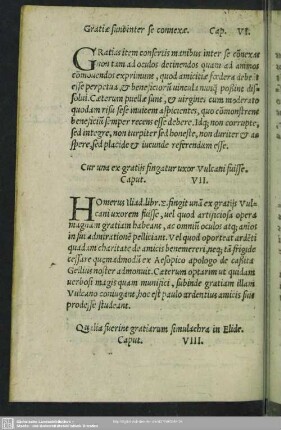 Gratiæ santinter se connexæ. Cap. VI.
GRatias item consertis manibus inter se cõnexas
non tam ad oculos detinendos quam ad animos
cõmouendos exprimunt, quod amicitiæ fœdera debeāt
esse perpetua, & beneficiorū uincula nunq̃ possint dis
solui. Cæterum puellæ sunt, & uirgines cum moderato
quodam risu sese mutuem aspicientes, quo cõmonstrent
beneficiū semper recens esse debere. Idq; non corrupte,
sed integre, non turpiter sed honeste, non duriter & a
spere, sed placide & iucunde referendum esse.
Cur una ex gratijs fingatur uxor Vulcani fuisse.
Caput. VII.
HOmerus Iliad. libr. Σ. fingit unā ex gratijs Vul-
cani uxorem fuisse, uel quod artificiosa opera
magnam gratiam habeant, ac omniū oculos atq; anios
in sui admirationē pelliciant. Vel quod oporteat ardēti
quadam charitate de amicis benemereri, neq; tā frigide
cessare quemadmodū ex Aesopico apologo de cassita
Gellius noster admonuit. Cæterum optarim ut quidam
uerbosi magis quam munifici, subinde gratiam illam
Vulcano coniugant, hoc est paulo ardentius amicis suis
prodesse studeant.
Qualia fuerint gratiarum simulachra in Elide.
Caput. VIII.